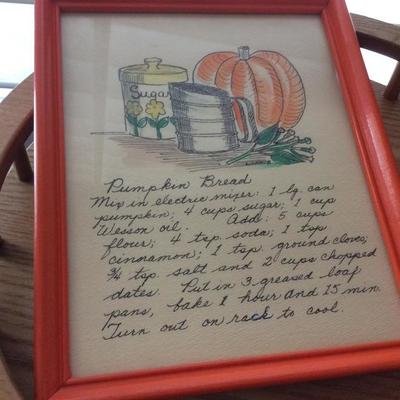 Sugar
Pumpkin Bread
Mix in electric mixer: 1 lg. can
pumpkin; 4 cups sugar; 1 cup
Wesson oil. Add: 5 cups
flour; 4 tsp. soda; 1 tsp
cinnamon; 1 tsp. ground cloves;
¾ tsp. salt and 2 cups chopped
dates. Put in 3 greased loaf
pans, bake 1 hour and 15 min.
Turn out on rack to cool.